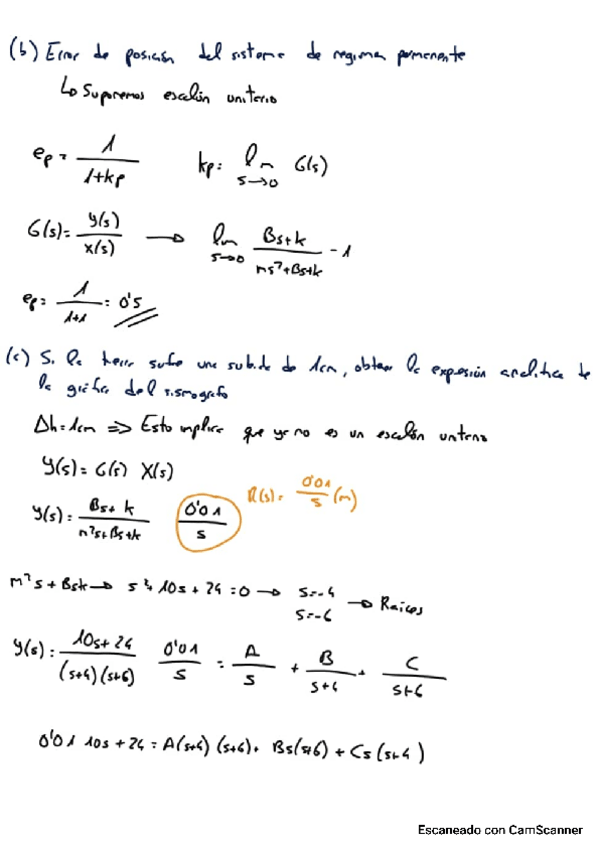 (b) Error de posición del sistema de regimen permanente
↳ Suponemos escalón unitario
ep = 1/(1+kp)   kp: lim s→0 G(s)
G(s) = Y(s)/X(s) → lim s→0 (Bs+k)/(ms²+Bs+k) = 1
ep = 1/(1+1) = 0'5
(c) Si la tierra sufre una subida de 1cm, obtener la expresión analitica de
la gráfica del sismografo
Δh = 1cm => Esto implica que ya no es un escalón unitario
Y(s) = G(s) X(s)
R(s) = 0'01/s (m)
Y(s) = (Bs+k)/(m²s+Bs+k) 0'01/s
m²s + Bsk → s²+10s+24=0 → s=-4 s=-6 → Raices
Y(s) = (10s+24)/((s+4)(s+6)) 0'01/s = A/s + B/(s+4) + C/(s+6)
0'01 10s+24 = A(s+4)(s+6) + Bs(s+6) + Cs(s+4)
Escaneado con CamScanner